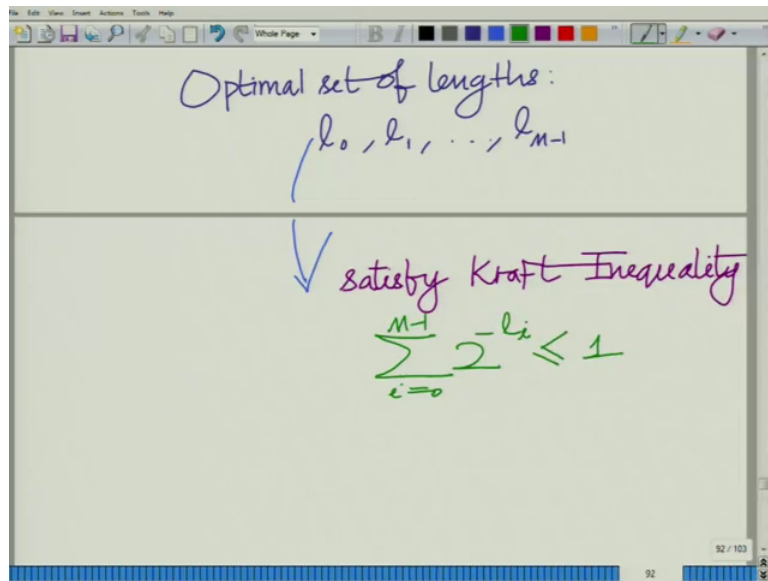 File Edit View Insert Actions Tools Help
Whole Page
B I
Optimal set of lengths:
l₀, l₁, ..., l_{M-1}
satisfy Kraft Inequality
\sum_{i=0}^{M-1} 2^{-l_i} ≤ 1
92 / 103
92